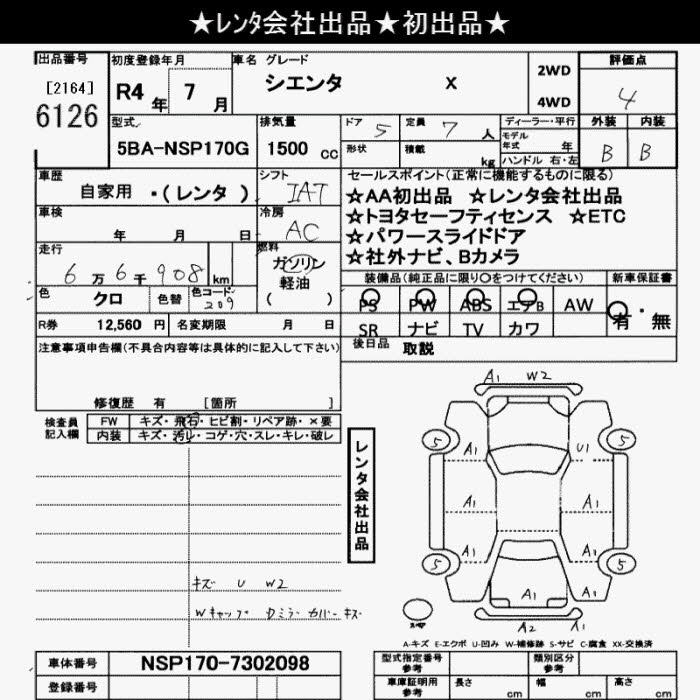 ★レンタ会社出品★初出品★
出品番号 初度登録年月 車名 グレード 評価点
[2164] R4年 7月 シエンタ X 2WD 4
6126 4WD
型式 排気量 ドア 5 定員 7 人 ディーラー・平行 外装 内装
5BA-NSP170G 1500 cc 形状 積載 kg モデル年式 年 B B
ハンドル 右・左
車歴 シフト セールスポイント(正常に機能するものに限る)
自家用 ・(レンタ ) IAT ★AA初出品 ★レンタ会社出品
車検 冷房 ★トヨタセーフティセンス ★ETC
年 月 日 AC ★パワースライドドア
走行 燃料 ★社外ナビ、Bカメラ
6万6千908 km ガソリン
軽油
( )
装備品(純正品に限り○をつけてください) 新車保証書
色 クロ 色替 色コード 209
PS PW ABS エアB AW 有・無
R券 12,560 円 名変期限 月 日 SR ナビ TV カワ
注意事項申告欄(不具合内容等は具体的に記入して下さい) 後日品 取説
修復歴 有 [箇所 ]
検査員記入欄 FW キズ・飛石・ヒビ割・リペア跡・×要
内装 キズ・汚れ・コゲ・穴・スレ・キレ・破レ
レンタ会社出品
A1 W2
5 5
A1 U1
A1 A1
A1 A1
5 5
A1 A1
A2 A1
キズ U W2
Wキャップ Dミラーカバーキズ
A-キズ E-エクボ U-凹み W-補修跡 S-サビ C-腐食 XX-交換済
車体番号 NSP170-7302098 型式指定番号 参考 類別区分 参考
登録番号 車庫証明用 参考 長さ cm 幅 cm 高さ cm